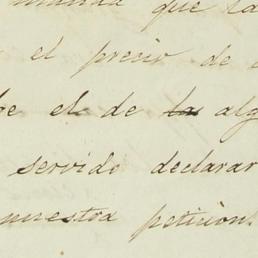 que la
el precio de
el de la alg
servido declarar
nuestra petición